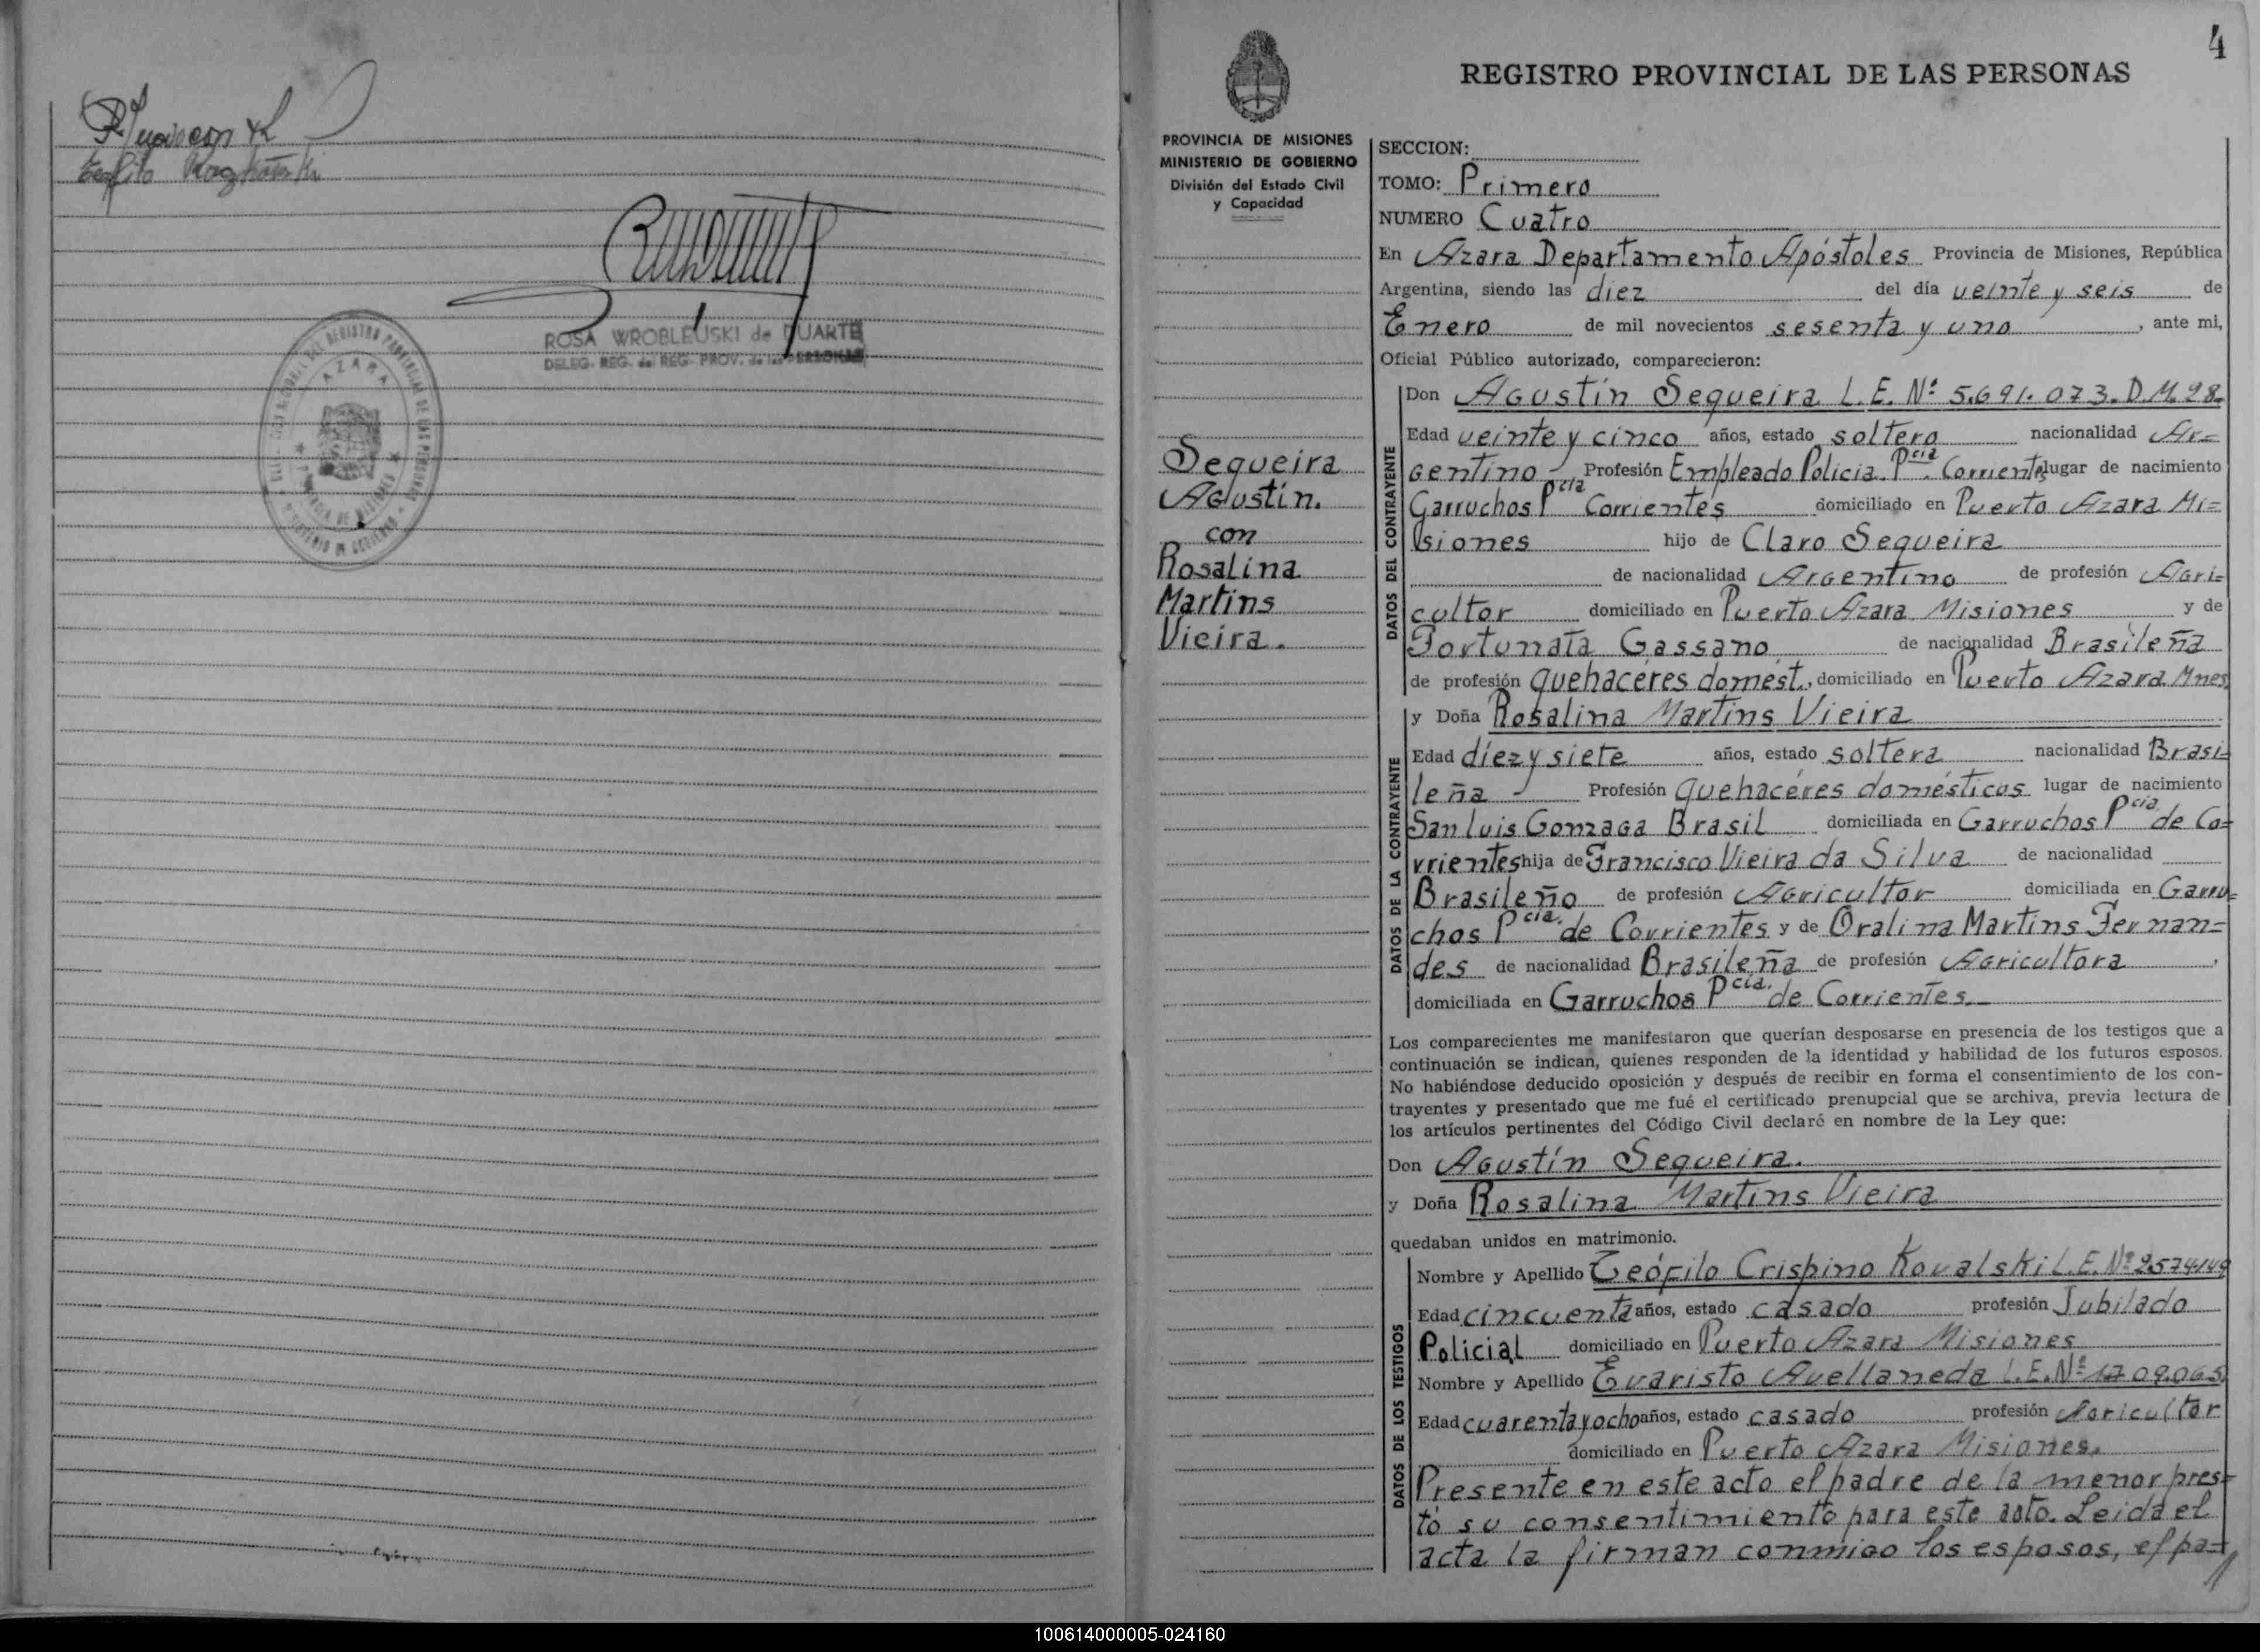 Teofilo
ROSA WROBLEUSKI de DUARTE
DELEG. REG. del REG. PROV. de las PERSONAS
AZARA
4
REGISTRO PROVINCIAL DE LAS PERSONAS
PROVINCIA DE MISIONES
MINISTERIO DE GOBIERNO
División del Estado Civil
y Capacidad
Sequeira
Agustín.
con
Rosalina
Martins
Vieira.
SECCION:
TOMO: Primero
NUMERO Cuatro
En Azara Departamento Apóstoles Provincia de Misiones, República
Argentina, siendo las diez del día veinte y seis de
Enero de mil novecientos sesenta y uno, ante mi,
Oficial Público autorizado, comparecieron:
DATOS DEL CONTRAYENTE
Don Agustín Sequeira L.E. Nº 5.691.073. D.M.28.
Edad veinte y cinco años, estado soltero nacionalidad Ar=
gentino - Profesión Empleado Policia. Pcia. Corrientes lugar de nacimiento
Garruchos Pcia Corrientes domiciliado en Puerto Azara Mi=
siones hijo de Claro Sequeira
de nacionalidad Argentino de profesión Agri=
cultor domiciliado en Puerto Azara Misiones y de
Fortunata Gassano de nacionalidad Brasileña
de profesión quehaceres domest., domiciliado en Puerto Azara Mnes.
DATOS DE LA CONTRAYENTE
y Doña Rosalina Martins Vieira
Edad diez y siete años, estado soltera nacionalidad Brasi=
leña - Profesión quehacéres domésticos lugar de nacimiento
San Luis Gonzaga Brasil domiciliada en Garruchos Pcia de Co=
rrientes hija de Francisco Vieira da Silva de nacionalidad
Brasileño de profesión Agricultor domiciliada en Garru=
chos Pcia. de Corrientes y de Oralina Martins Fernan=
des de nacionalidad Brasileña de profesión Agricultora,
domiciliada en Garruchos Pcia. de Corrientes.-
Los comparecientes me manifestaron que querían desposarse en presencia de los testigos que a
continuación se indican, quienes responden de la identidad y habilidad de los futuros esposos.
No habiéndose deducido oposición y después de recibir en forma el consentimiento de los con-
trayentes y presentado que me fué el certificado prenupcial que se archiva, previa lectura de
los artículos pertinentes del Código Civil declaré en nombre de la Ley que:
Don Agustín Sequeira.
y Doña Rosalina Martins Vieira
quedaban unidos en matrimonio.
DATOS DE LOS TESTIGOS
Nombre y Apellido Teófilo Crispino Kovalski L.E. Nº 2574149
Edad cincuenta años, estado casado profesión Jubilado
Policial domiciliado en Puerto Azara Misiones
Nombre y Apellido Evaristo Avellaneda L.E. Nº
Edad cuarenta y ocho años, estado casado profesión Agricultor
domiciliado en Puerto Azara Misiones.
Presente en este acto el padre de la menor pres=
tó su consentimiento para este acto. Leida el
acta la firman conmigo los esposos, el pa=
100614000005-024160